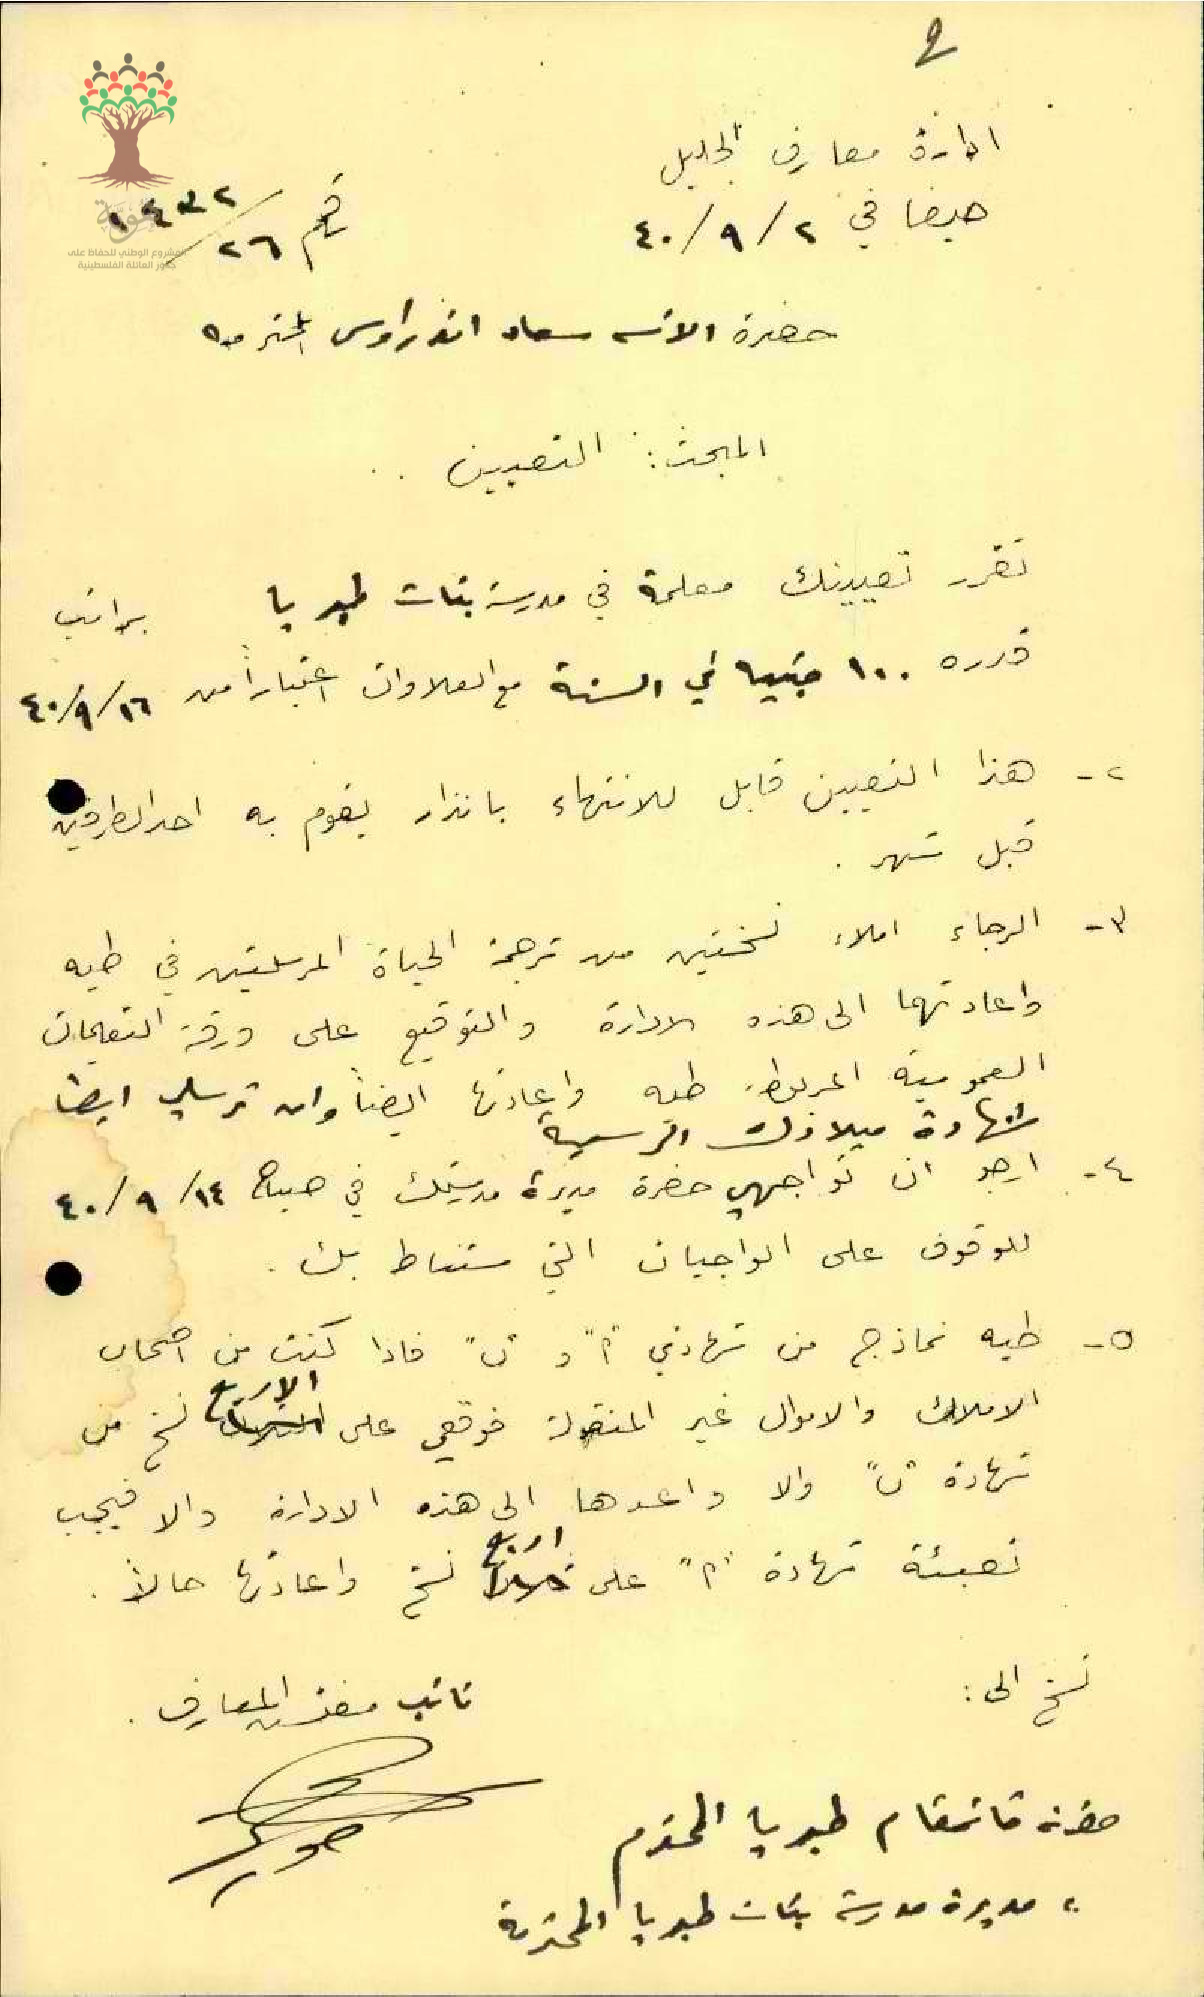 ادارة معارف الجليل
حيفا في ٤٠/٩/٢
رقم ١٤٣٢/٢٦
هوية
المشروع الوطني للحفاظ على
جذور العائلة الفلسطينية
حضرة الانسه سعاد اندراوس المحترمه
المبحث: التعيين .
تقرر تعيينك معلمة في مدرسة بنات طبريا براتب
قدره ١٠٠ جنيه في السنة مع العلاوات اعتباراً من ٤٠/٩/١٦
٢- هذا التعيين قابل للانتهاء بانذار يقوم به احد الطرفين
قبل شهر .
٣- الرجاء املاء نسختين من ترجمة الحياة المرسلتين في طيه
واعادتهما الى هذه الادارة والتوقيع على ورقة التعليمات
العمومية المربوطة طيه واعادتها ايضاً وان ترسلي ايضا
شهادة ميلادك الرسمية
٤- ارجو ان تواجهي حضرة مديرة مدرستك في صباح ٤٠/٩/١٤
للوقوف على الواجبات التي ستناط بك .
٥- طيه نماذج من شهادتي "م" و "ن" فاذا كنت من اصحاب
الاملاك والاموال غير المنقولة فوقعي على الاربع نسخ من
شهادة "ن" والا واعدها الى هذه الادارة والا فيجب
تعبئة شهادة "م" على اربع نسخ واعادتها حالاً .
نائب مفتش المعارف .
نسخ الى :
حضرة قائمقام طبريا المحترم
" مديرة مدرسة بنات طبريا المحترمة